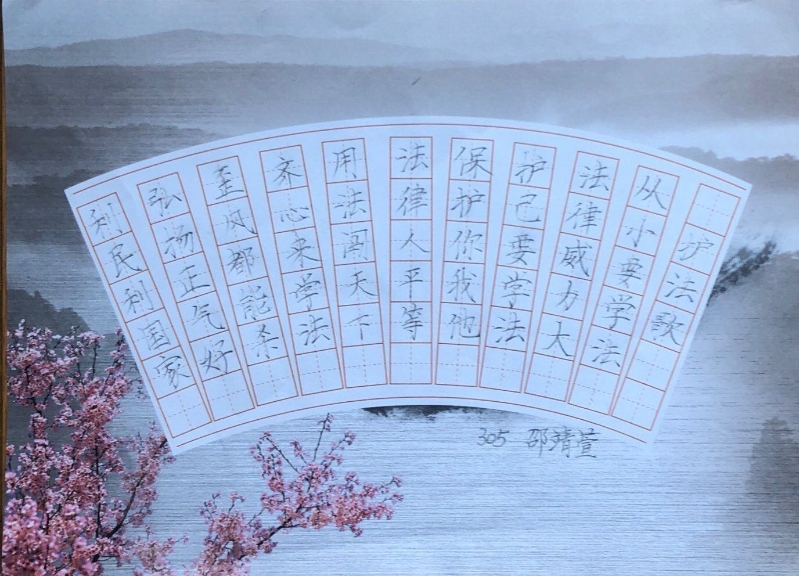 护法歌
从小要学法
法律威力大
护己要学法
保护你我他
法律人平等
用法闯天下
齐心来学法
歪风都能杀
弘扬正气好
利民利国家
305 邵靖萱